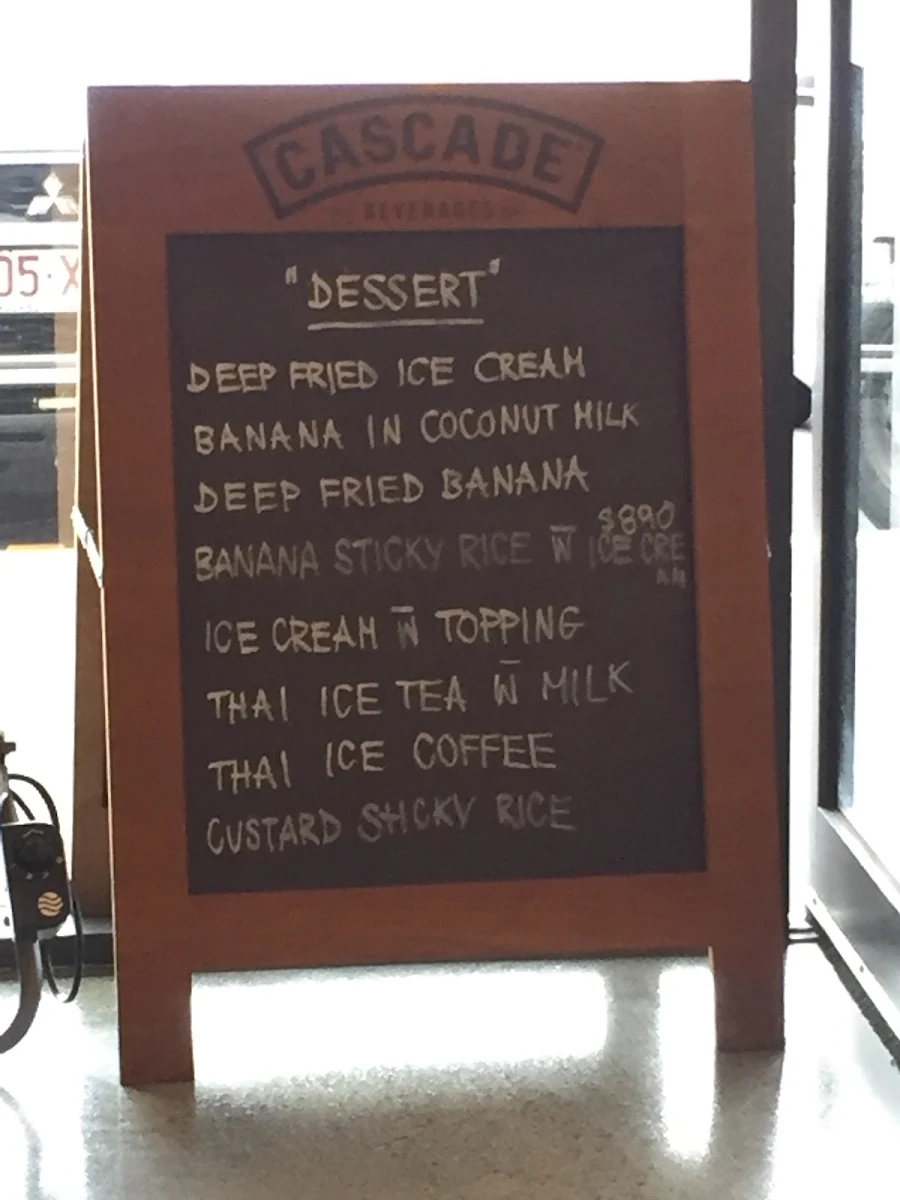 CASCADE
BEVERAGES
"DESSERT"
DEEP FRIED ICE CREAM
BANANA IN COCONUT MILK
DEEP FRIED BANANA
$890
BANANA STICKY RICE W̅ ICE CRE
AM
ICE CREAM W̅ TOPPING
THAI ICE TEA W̅ MILK
THAI ICE COFFEE
CUSTARD STICKY RICE
05·X